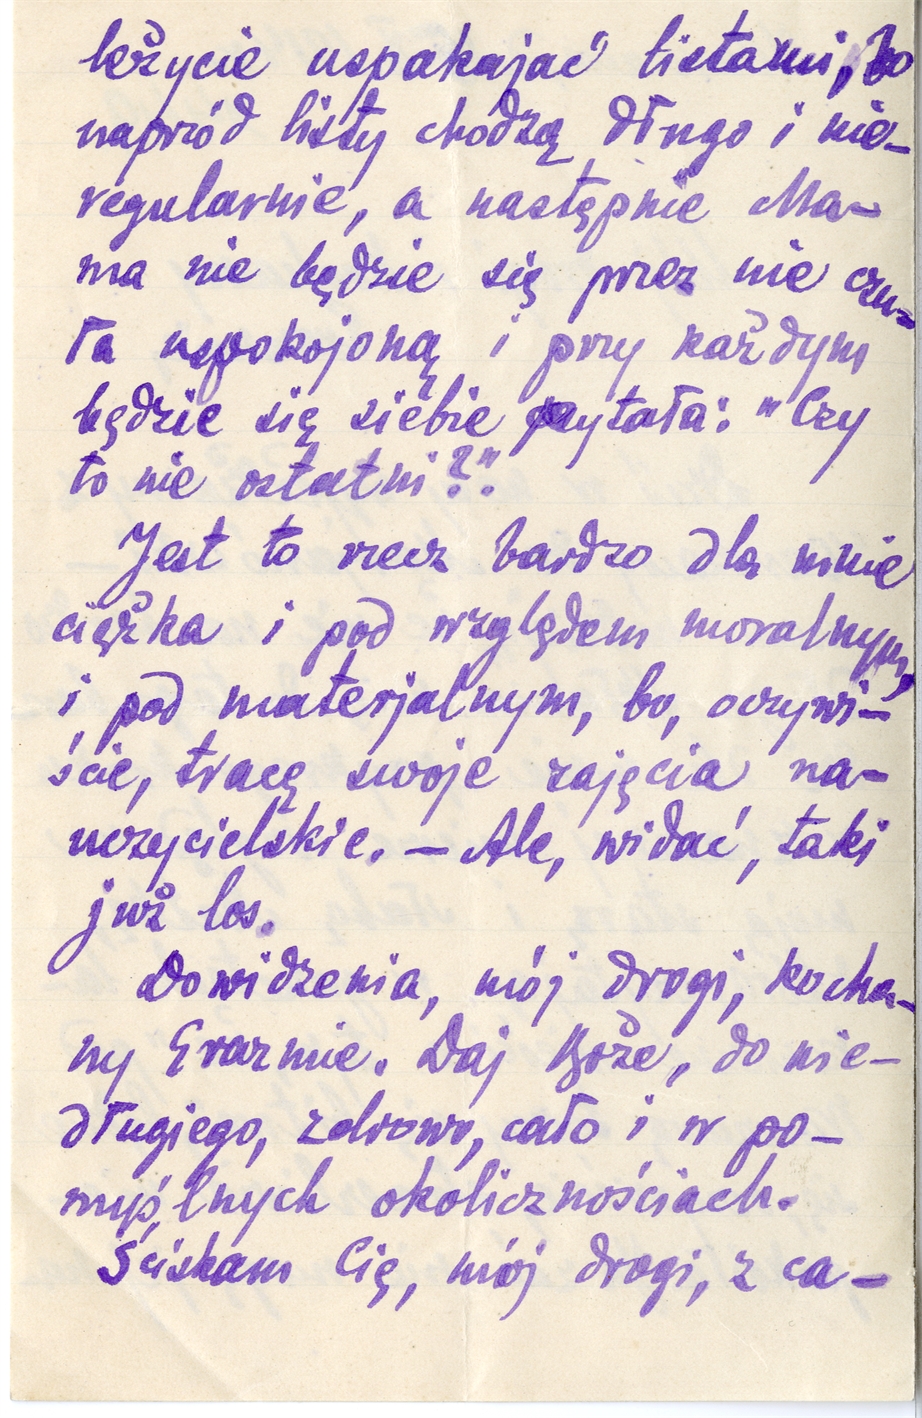 leżycie uspakajać listami, bo
napród listy chodzą długo i nie-
regularnie, a następnie Ma-
ma nie będzie się przez nie czu-
ła uspokojoną i przy każdym
będzie się siebie pytała: "Czy
to nie ostatni?".
Jest to rzecz bardzo dla mnie
ciężka i pod względem moralnym,
i pod materjalnym, bo, oczywi-
ście, tracę swoje zajęcia na-
uczycielskie. — Ale, widać, taki
już los.
Dowidzenia, mój drogi, kocha-
ny Erazmie. Daj Boże, do nie-
długiego, zdrowo, cało i w po-
myślnych okolicznościach.
Ściskam Cię, mój drogi, z ca-